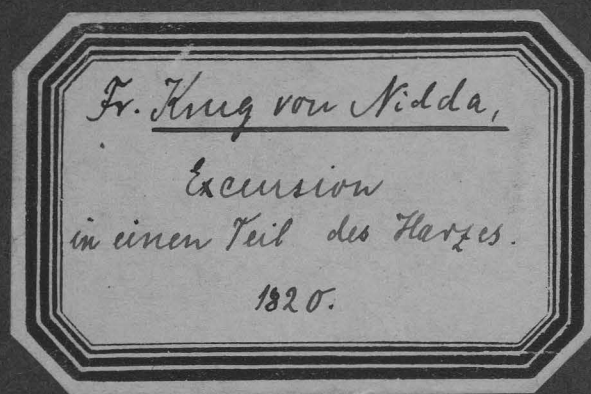 Fr. Krug von Nidda,
Excursion
in einen Teil des Harzes.
1820.